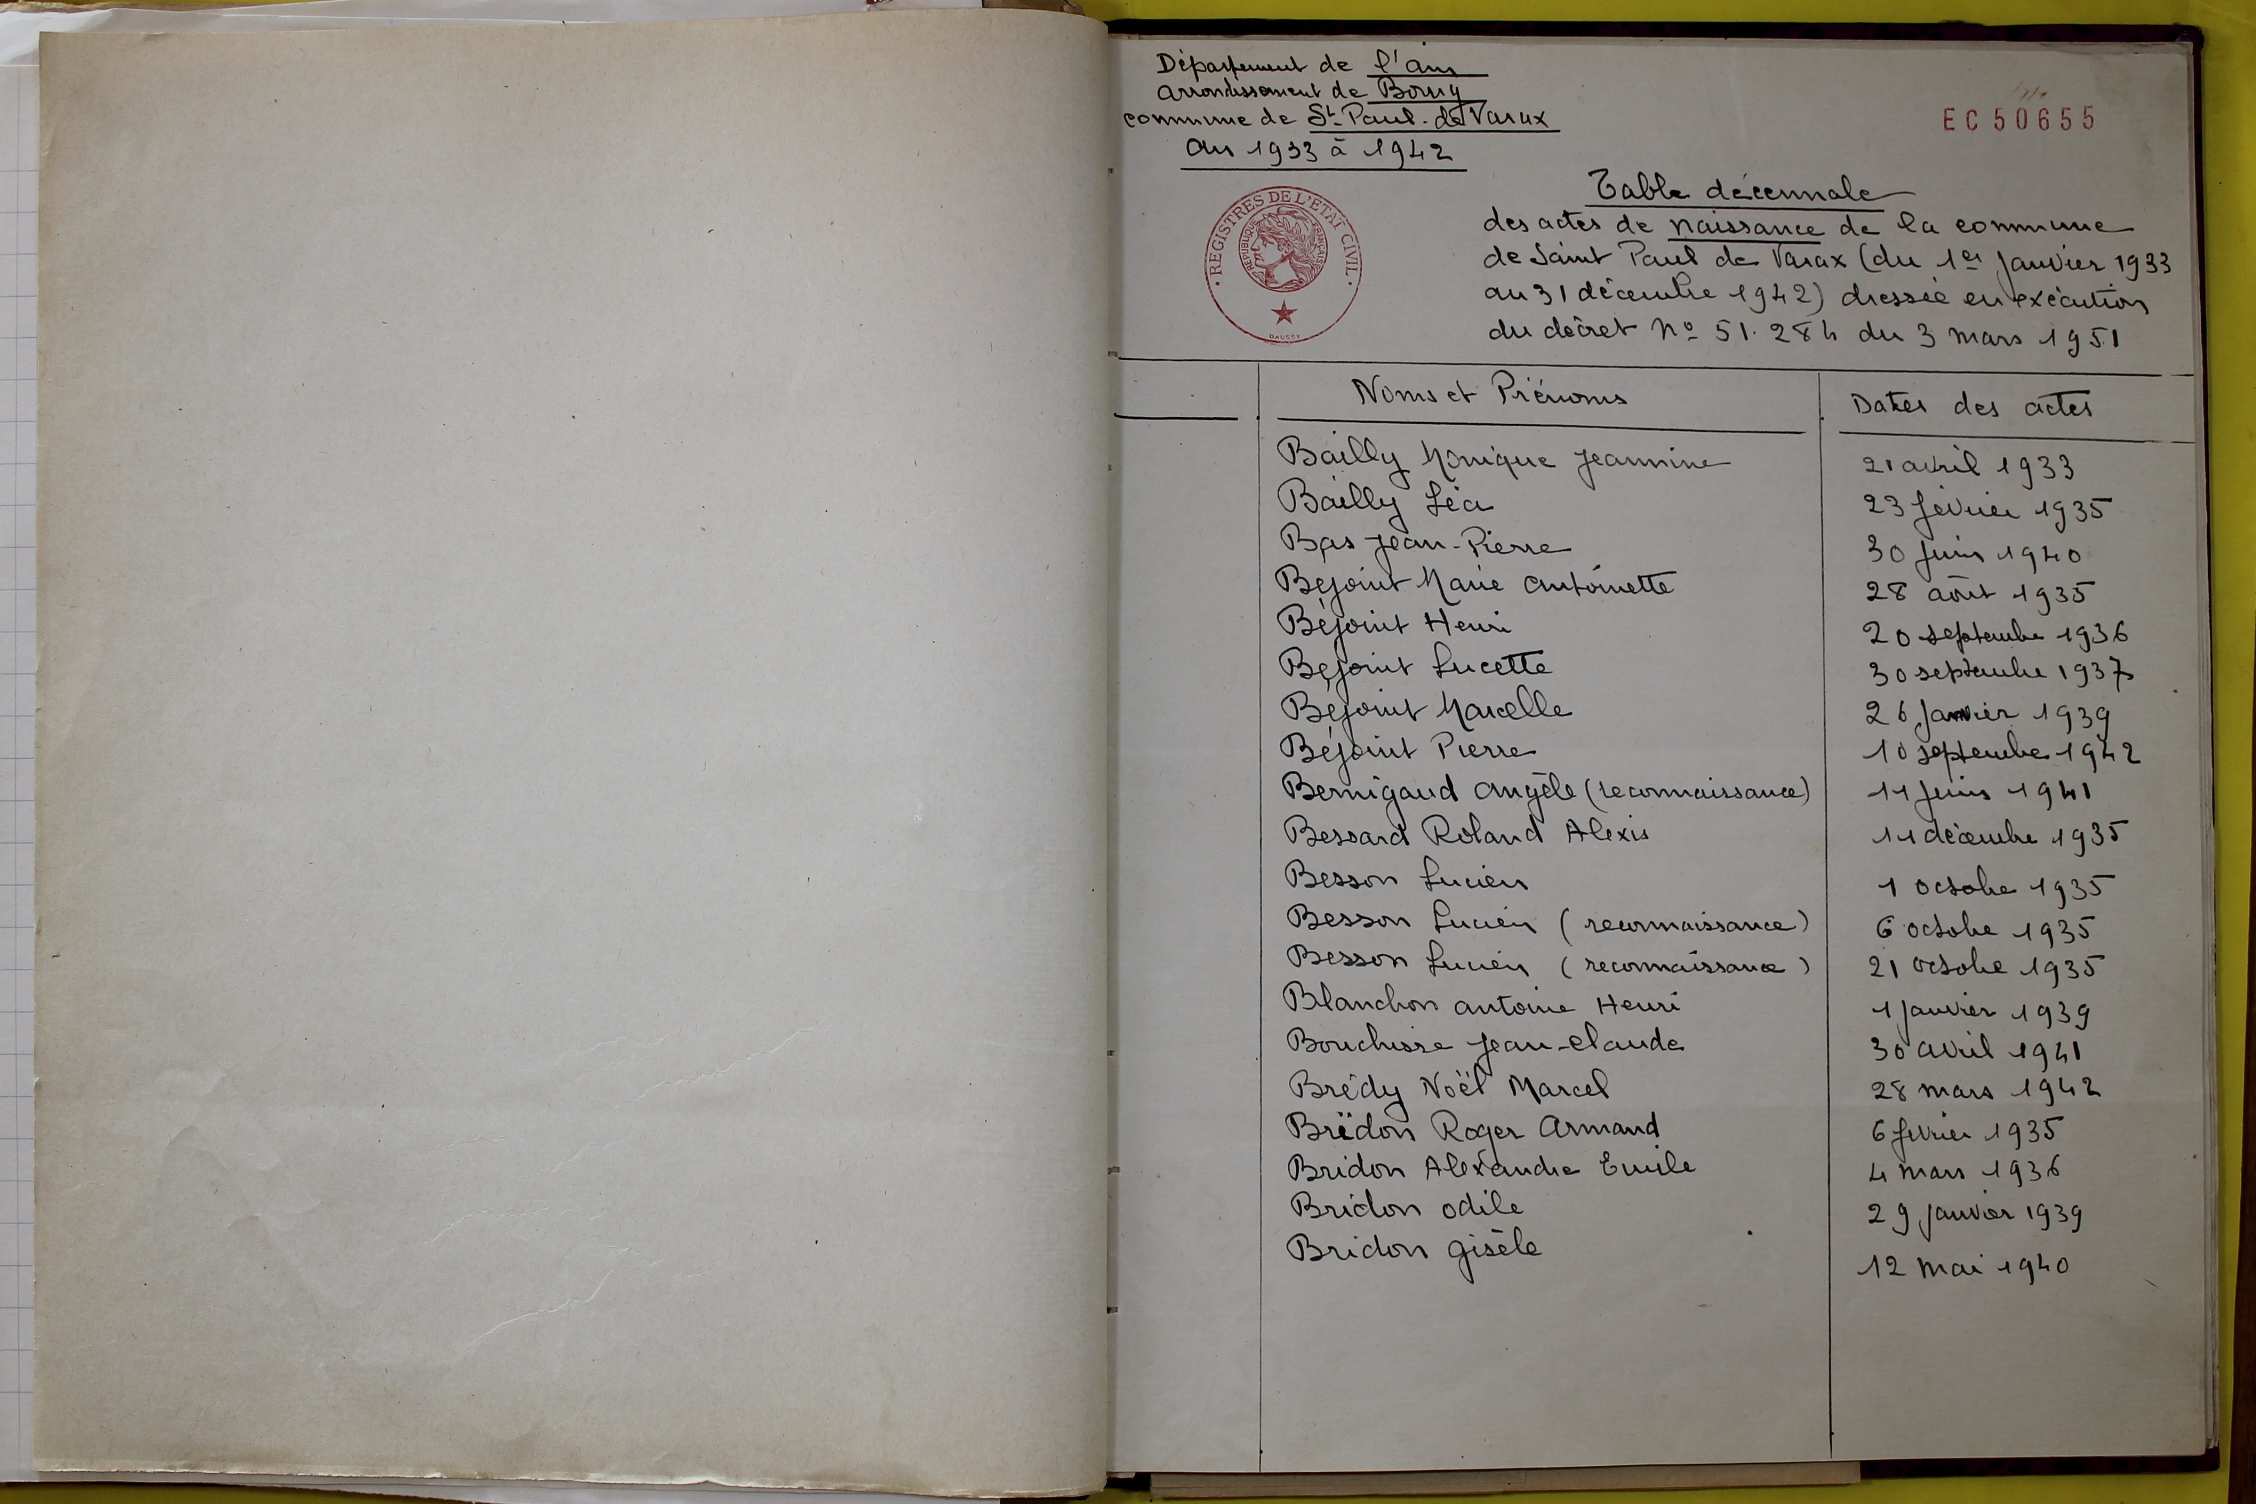 Département de l'ain
arrondissement de Bourg
commune de St Paul-de Varax
an 1933 à 1942
EC50655
REGISTRES DE L'ETAT CIVIL
REPUBLIQUE FRANÇAISE
Table décennale
des actes de naissance de la commune
de Saint Paul de Varax (du 1er janvier 1933
au 31 décembre 1942) dressée en exécution
du décret No 51.284 du 3 mars 1951
Noms et Prénoms Dates des actes
Bailly Monique Jeannine 21 avril 1933
Bailly Léa 23 février 1935
Bas Jean-Pierre 30 juin 1940
Béjoint Marie antoinette 28 août 1935
Béjoint Henri 20 septembre 1936
Béjoint Lucette 30 septembre 1937
Béjoint Marcelle 26 janvier 1939
Béjoint Pierre 10 septembre 1942
Bernigaud angèle (reconnaissance) 11 juin 1941
Bessard Roland Alexis 11 décembre 1935
Besson Lucien 1 octobre 1935
Besson Lucien (reconnaissance) 6 octobre 1935
Besson Lucien (reconnaissance) 21 octobre 1935
Blanchon antoine Henri 1 janvier 1939
Bouchisse Jean-claude 30 avril 1941
Brédy Noël Marcel 28 mars 1942
Bridon Roger Armand 6 février 1935
Bridon Alexandre Emile 4 mars 1936
Bridon odile 29 janvier 1939
Bridon gisèle 12 mai 1940